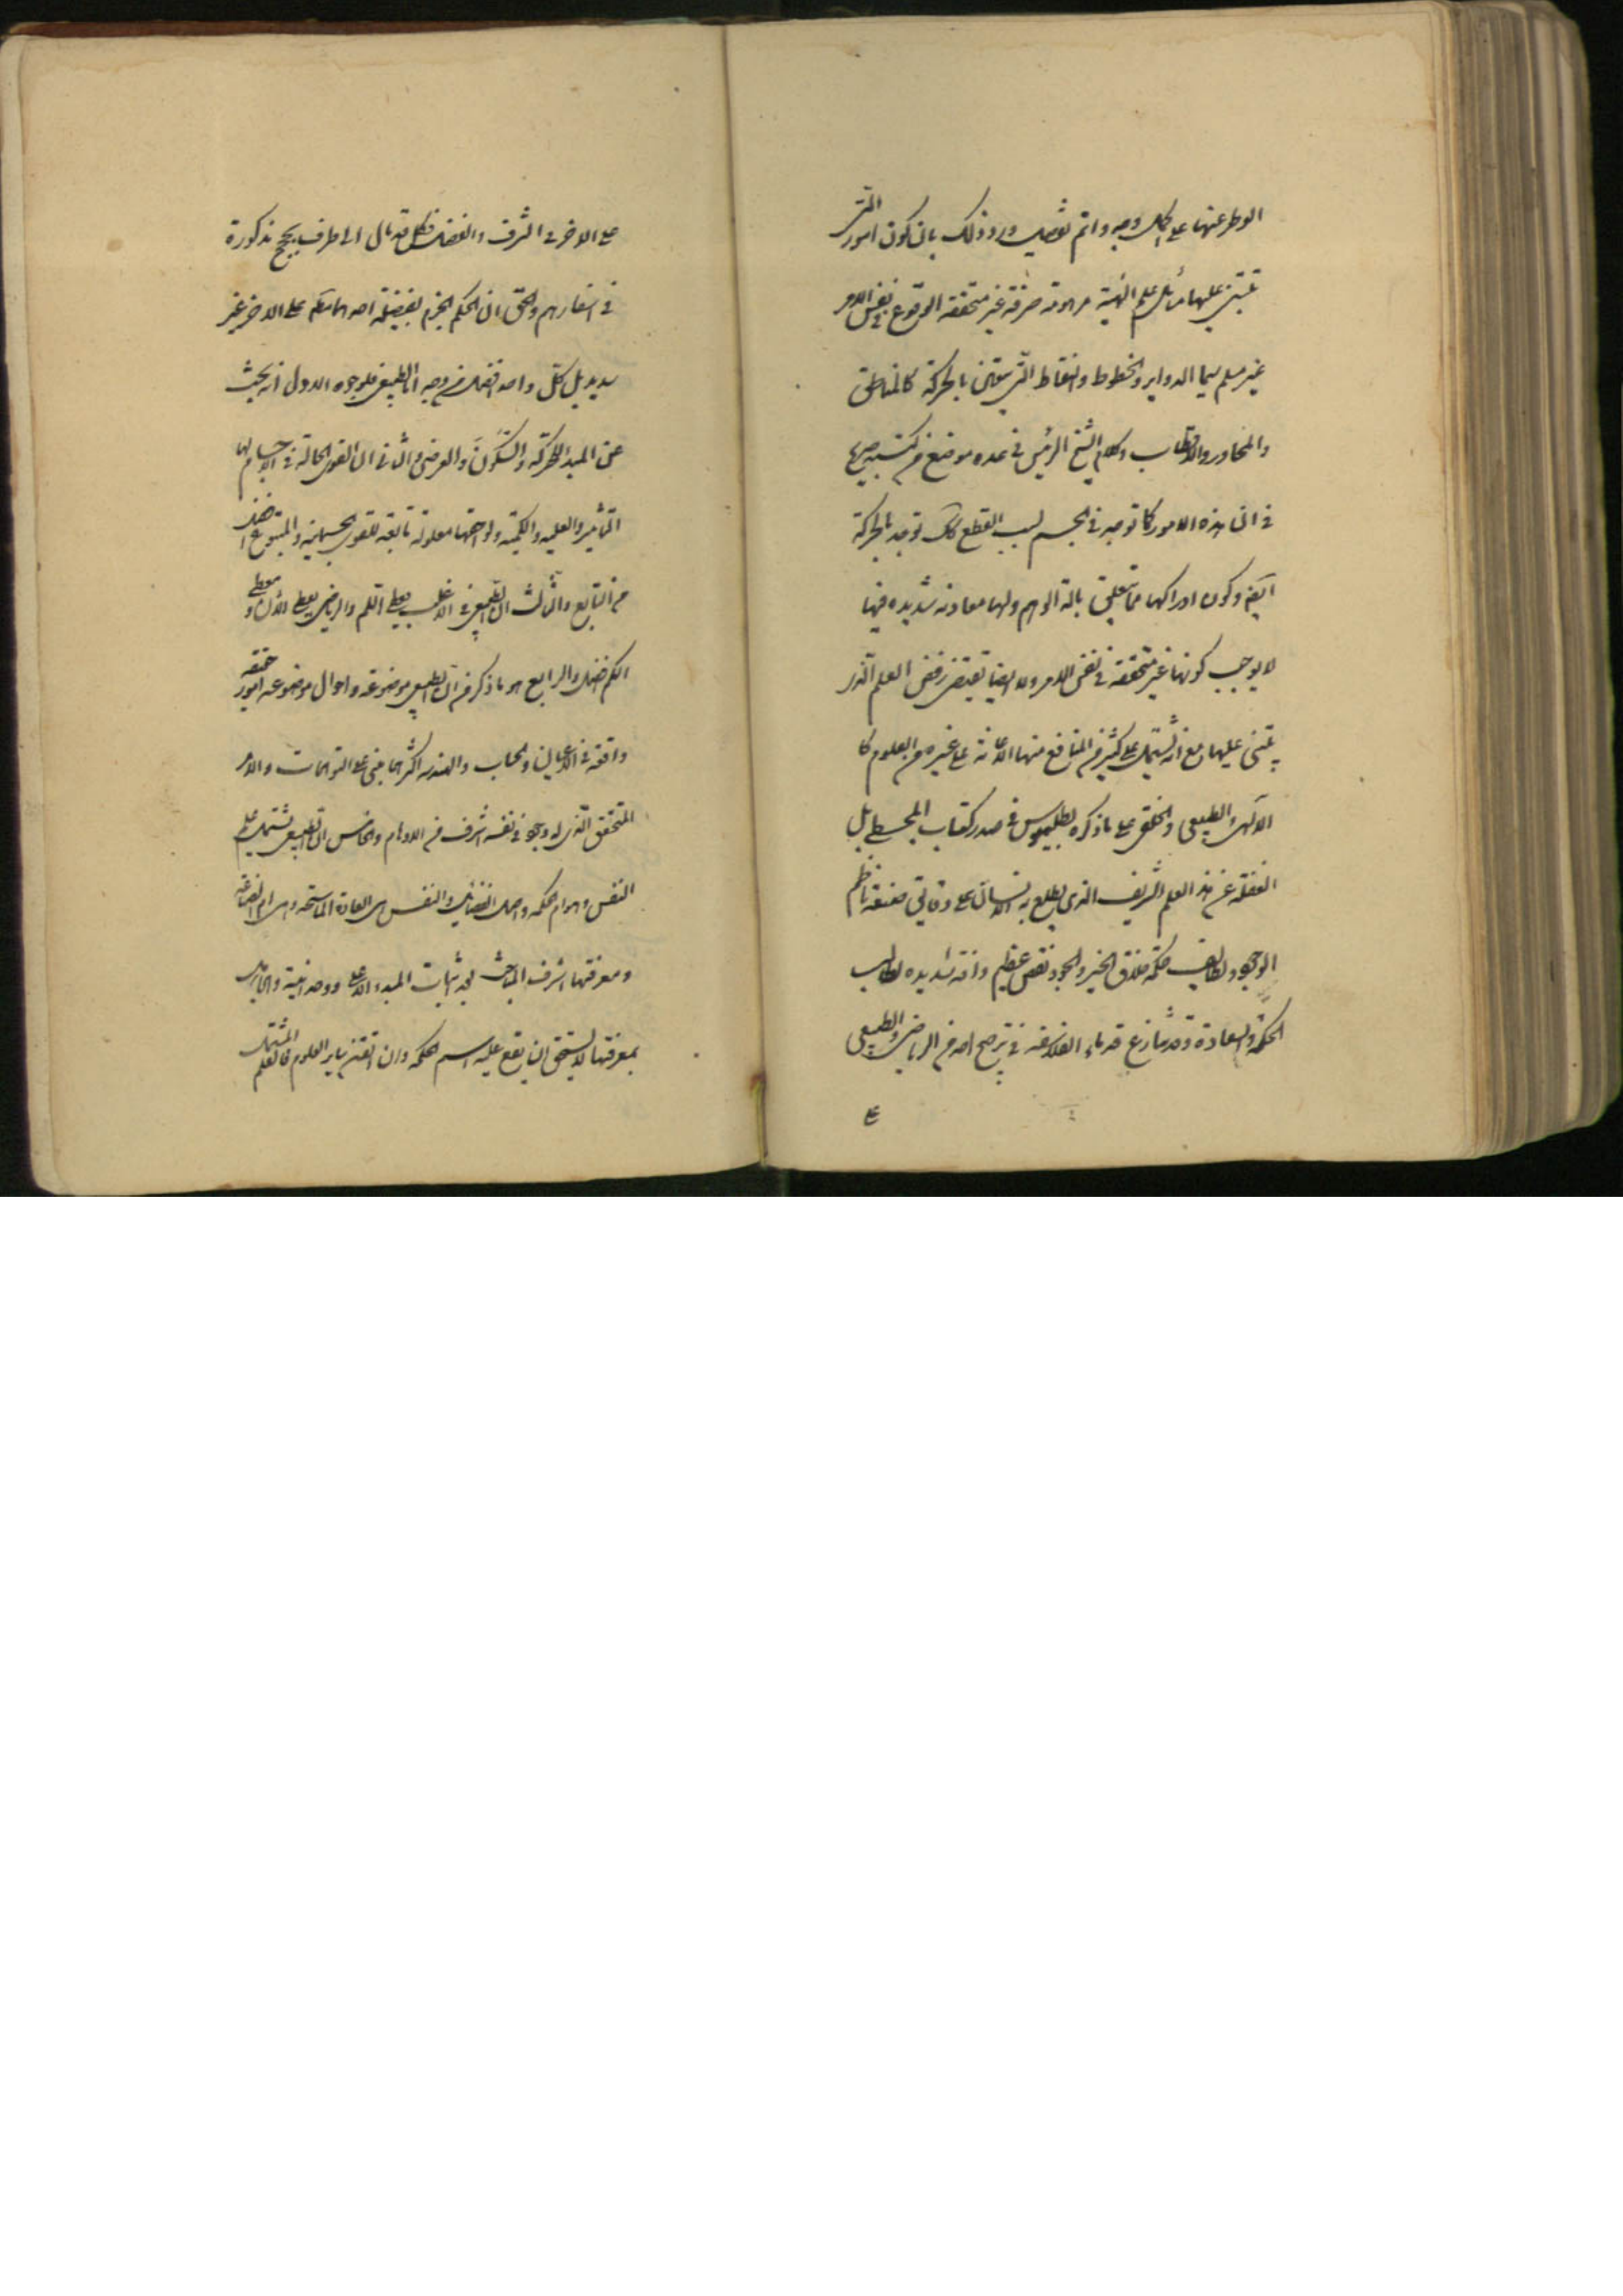 الوطر عنها على اكمل وجه واتم تفصيل ورد ذلك بان كون امور التي
تبتنى عليها مسائل علم الهيئة موهومة صرفة غير متحققة الوقوع في نفس الامر
غير مسلم سيما الدواير والخطوط والنقاط التي يتعلق بالحركة كالمناطق
والمحاور والاقطاب وكلام الشيخ الرئيس في عده موضع من كتبه صريح
في ان هذه الامور كما توجد في الجسم بسبب القطع كك توجد بالحركة
ايضا وكون ادراكها مما يتعلق بالة الوهم ولها معاونه شديده فيها
لا يوجب كونها غير متحققه في نفس الامر ولا ايضا يقتضى رفض العلم الذى
يبتنى عليها مع انه يشتمل على كثير من المنافع منها الاعانة على غيره من العلوم كا
الالهى والطبيعى والخلقى على ماذكره بطلميوس في صدر كتاب المجسطى بل
الغفلة عن هذ العلم الشريف الذى يطلع به الانسان على دقائق صنعة ناظم
الوجود ولطايف حكمة خلاق الخير والجود نقص عظيم وافة شديده لطالب
الحكمة والسعادة وقد تنازع قدماء الفلاسفه في ترجيح احد من الرياضى والطبيعى
على
على الاخر في الشرف والفضل فكل قد مال الى طرف بحجج مذكورة
في اسفارهم والحق ان الحكم الجزم بفضيلة احدهما على الاخر غير
سديد بل كل واحد افضل من وجه اما الطبيعى فلوجوه الاول انه يبحث
عن المبدا للحركة والسكون والعرضى والثاني ان القوى الحالة في الاجسام لها
التاثير والعليه والكميه ولواحقها معلولة تابعة للقوى الجسمانيه والمتبوع افضل
من التابع والثالث ان الطبيعى في الاغلب يعطى اللم والرياضى يعطى الان ومعطى
اللم افضل والرابع هو ماذكر من ان الطبيعى موضوعه واحوال موضوعه امور حقيقه
واقعة في الاعيان والحساب والهندسه اكثرهما مبنى على التوهمات والامر
المتحقق الذى له وجود في نفسه اشرف من الاوهام والخامس ان الطبيعى يشتمل على علم
النفس وهو ام الحكمه واصل الفضائل والنفس هى المادة
ومعرفتها اشرف المباحث بعد اثبات المبدء الاعلى ووحدانيته والجاهل
بمعرفتها لا يستحق ان يقع عليه اسم الحكمه وان اتقن ساير العلوم فالعلم المشتمل